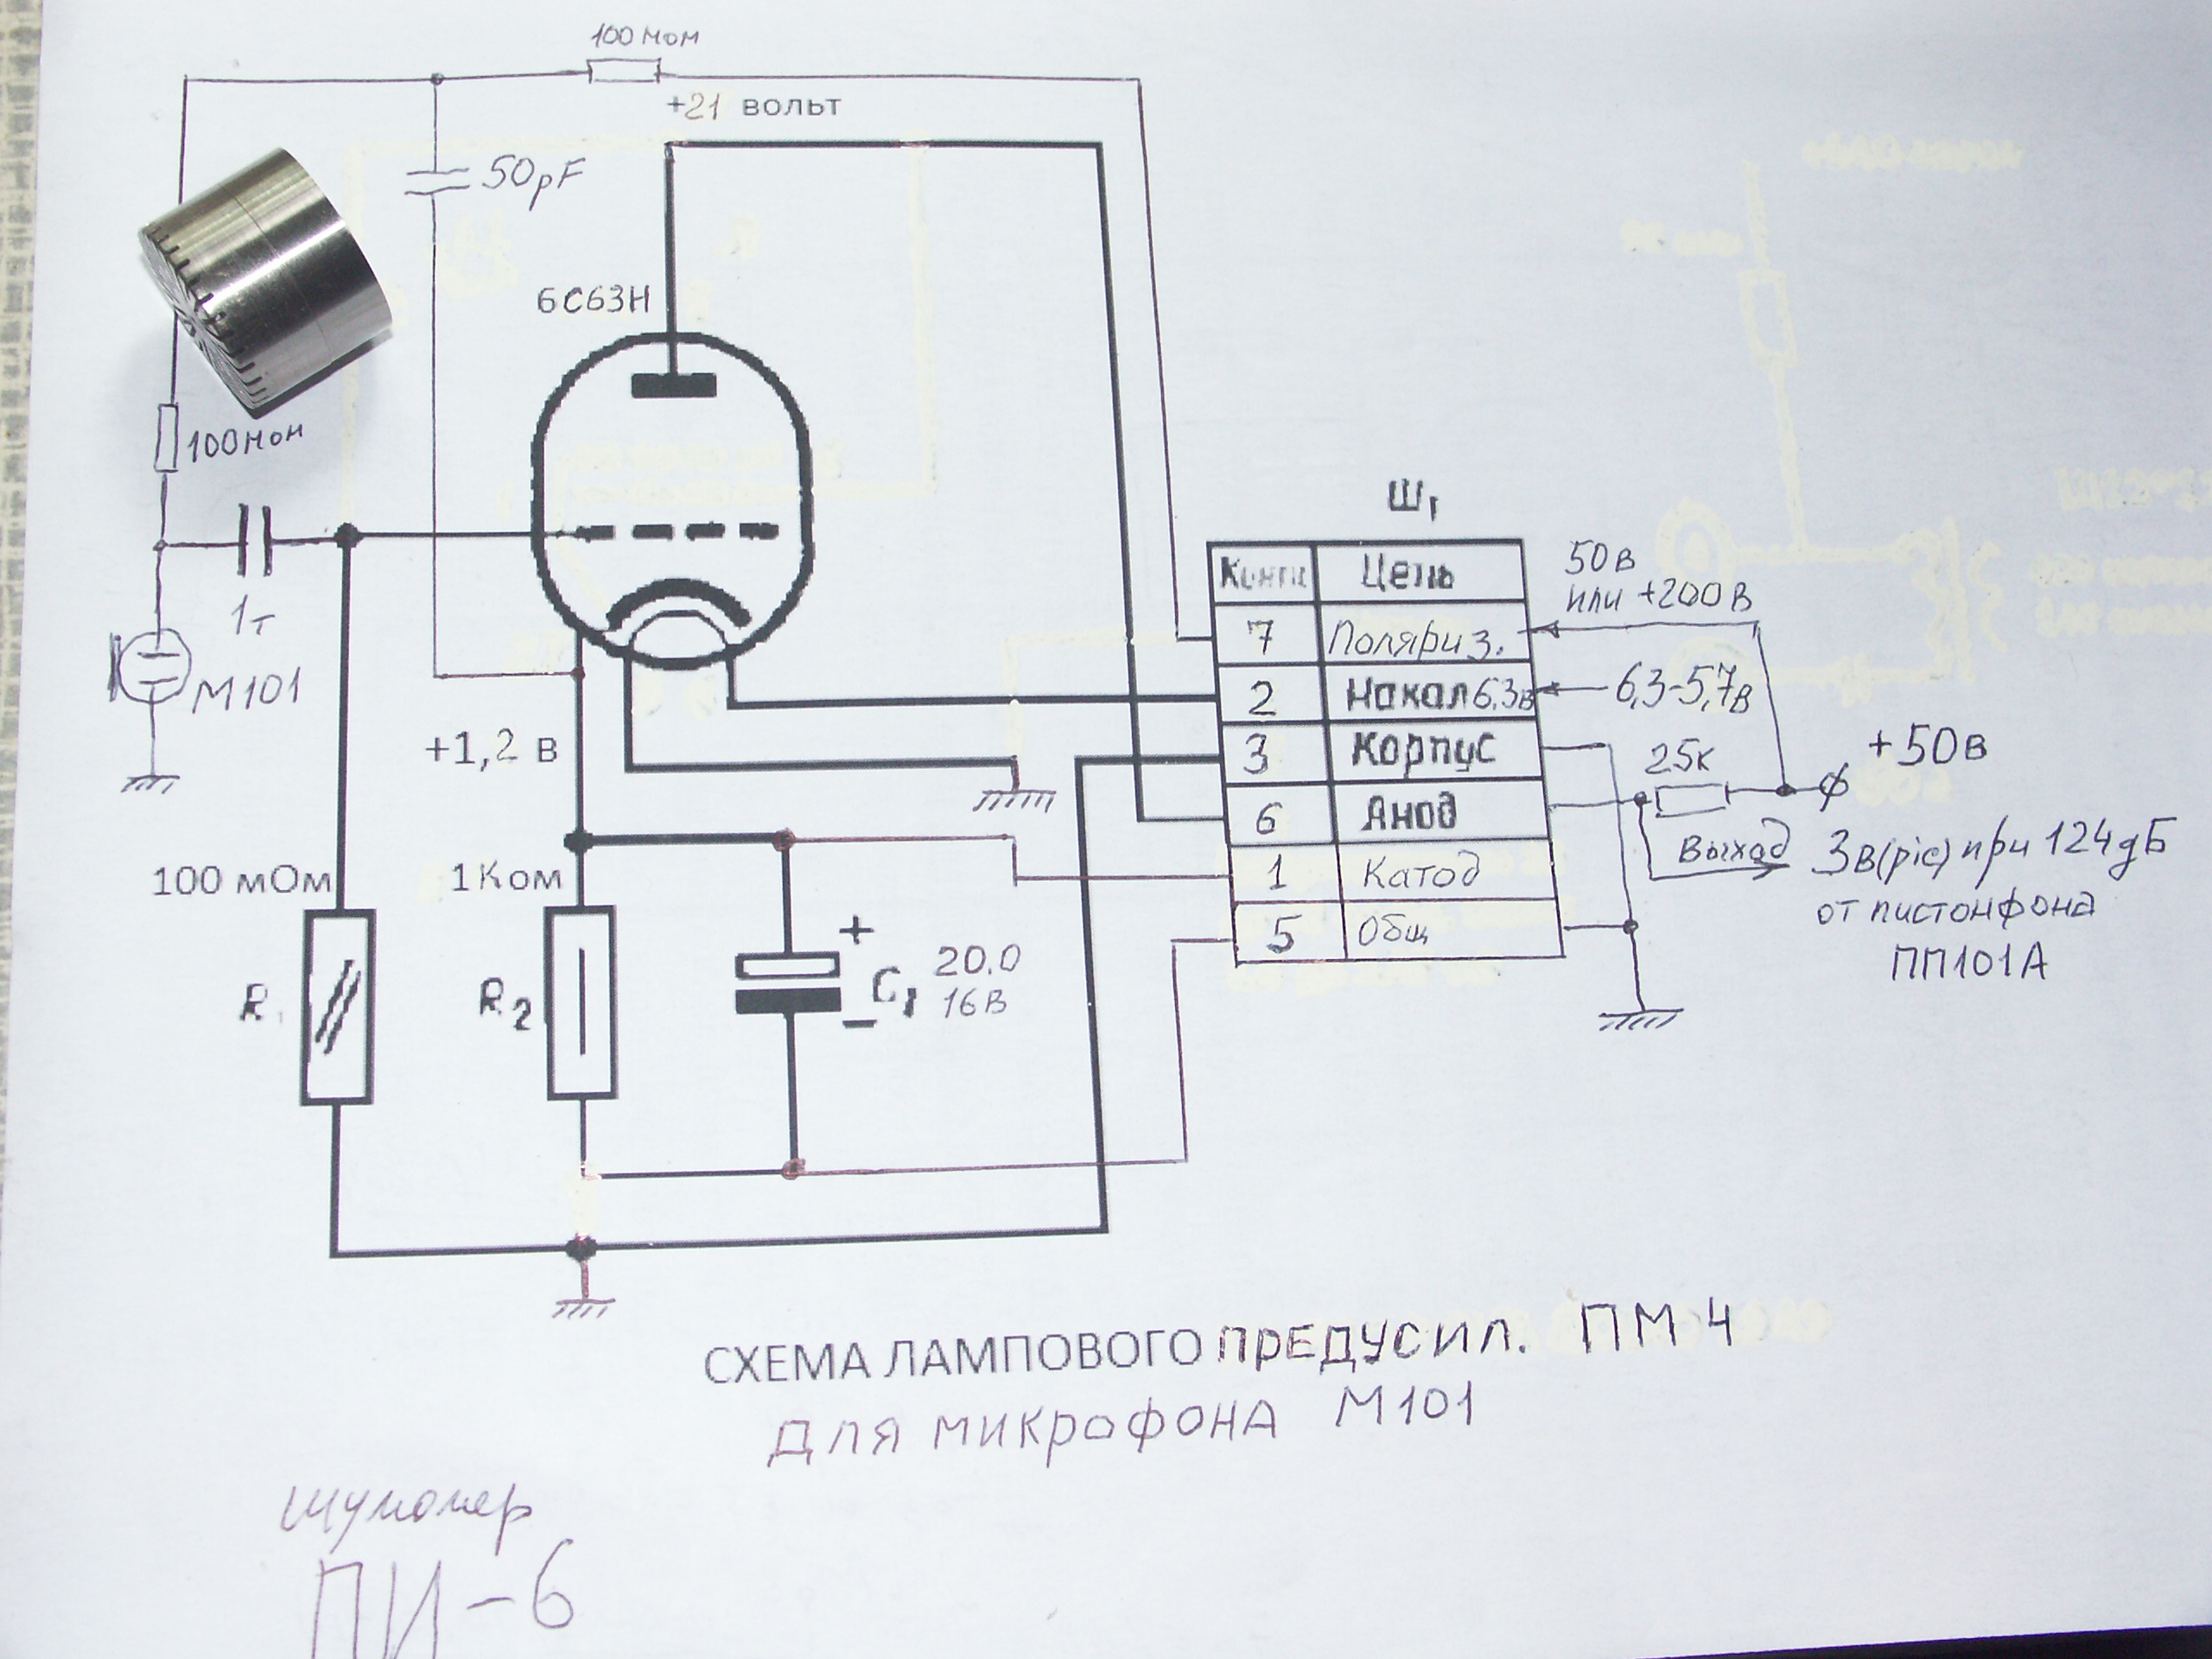 100 мом
+21 вольт
50pF
6С63Н
100 мом
1т
М101
+1,2 в
100 мОм
1Ком
R
R2
+
C1 20.0
− 16В
Ш1
Цепь
7 Поляриз.
2 Накал 6,3в
3 Корпус
6 Анод
1 Катод
5 Общ
50в
или +200в
6,3-5,7в
25к
+50в
Выход 3в(pic) при 124дБ
от пистонфона
ПП101А
СХЕМА ЛАМПОВОГО ПРЕДУСИЛ. ПМ 4
ДЛЯ МИКРОФОНА М101
шумомер
ПИ-6